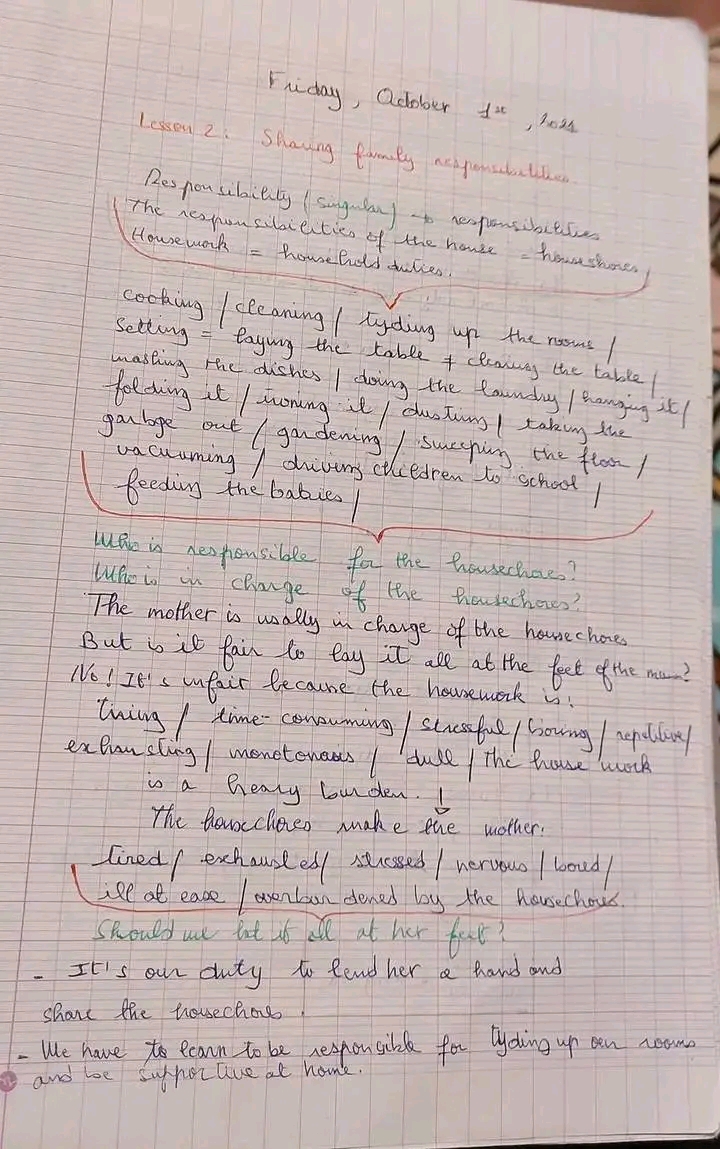 Friday, October 1st, 2021
Lesson 2: Sharing family responsibilities
Responsibility (singular) → responsibilities
The responsibilities of the house = houseshores/
Housework = household duties.
cooking / cleaning / tyding up the rooms /
Setting = laying the table ≠ clearing the table /
washing the dishes / doing the laundry / hanging it /
folding it / ironing it / dusting / taking the
garbage out / gardening / sweeping the floor /
vacuuming / driving children to school /
feeding the babies /
Who is responsible for the housechores?
Who is in charge of the housechores?
The mother is usally in charge of the housechores
But is it fair to lay it all at the feet of the mum?
No! It's unfair because the housework is:
tiring / time-consuming / stressful / boring / repetitive /
exhausting / monotonous / dull / the house work
is a heavy burden. !
The housechores make the mother:
tired / exhausted / stressed / nervous / bored /
ill at ease / overburdened by the housechores.
Should we lat it all at her feet?
- It's our duty to lend her a hand and
share the housechores.
- We have to learn to be responsible for tyding up our rooms
and be supportive at home.